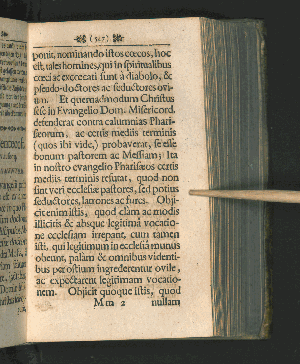 (547)
ponit, nominando istos cœcos, hoc
est, tales homines, qui in spiritualibus
cœci ac excœcati sunt à diabolo, &
pseudo-doctores ac seductores ovi-
um. Et quemadmodum Christus
sese in Evangelio Dom. Misericord.
defenderat contra calumnias Phari-
sæorum, ac certis mediis terminis
(quos ibi vide,) probaverat, se esse
bonum pastorem ac Messiam; Ita
in nostro evangelio Pharisæos certis
mediis terminis refutat, quod non
sint veri ecclesiæ pastores, sed potius
seductores, latrones ac fures. Obji-
cit enim istis, quod clàm ac modis
illicitis & absque legitimâ vocatio-
ne ecclesiam irrepant, cum tamen
isti, qui legitimum in ecclesiâ munus
obeunt, palàm & omnibus videnti-
bus per ostium ingrederentur ovile,
ac expectarent legitimam vocatio-
nem. Objicit quoque istis, quod
Mm 2 nullam